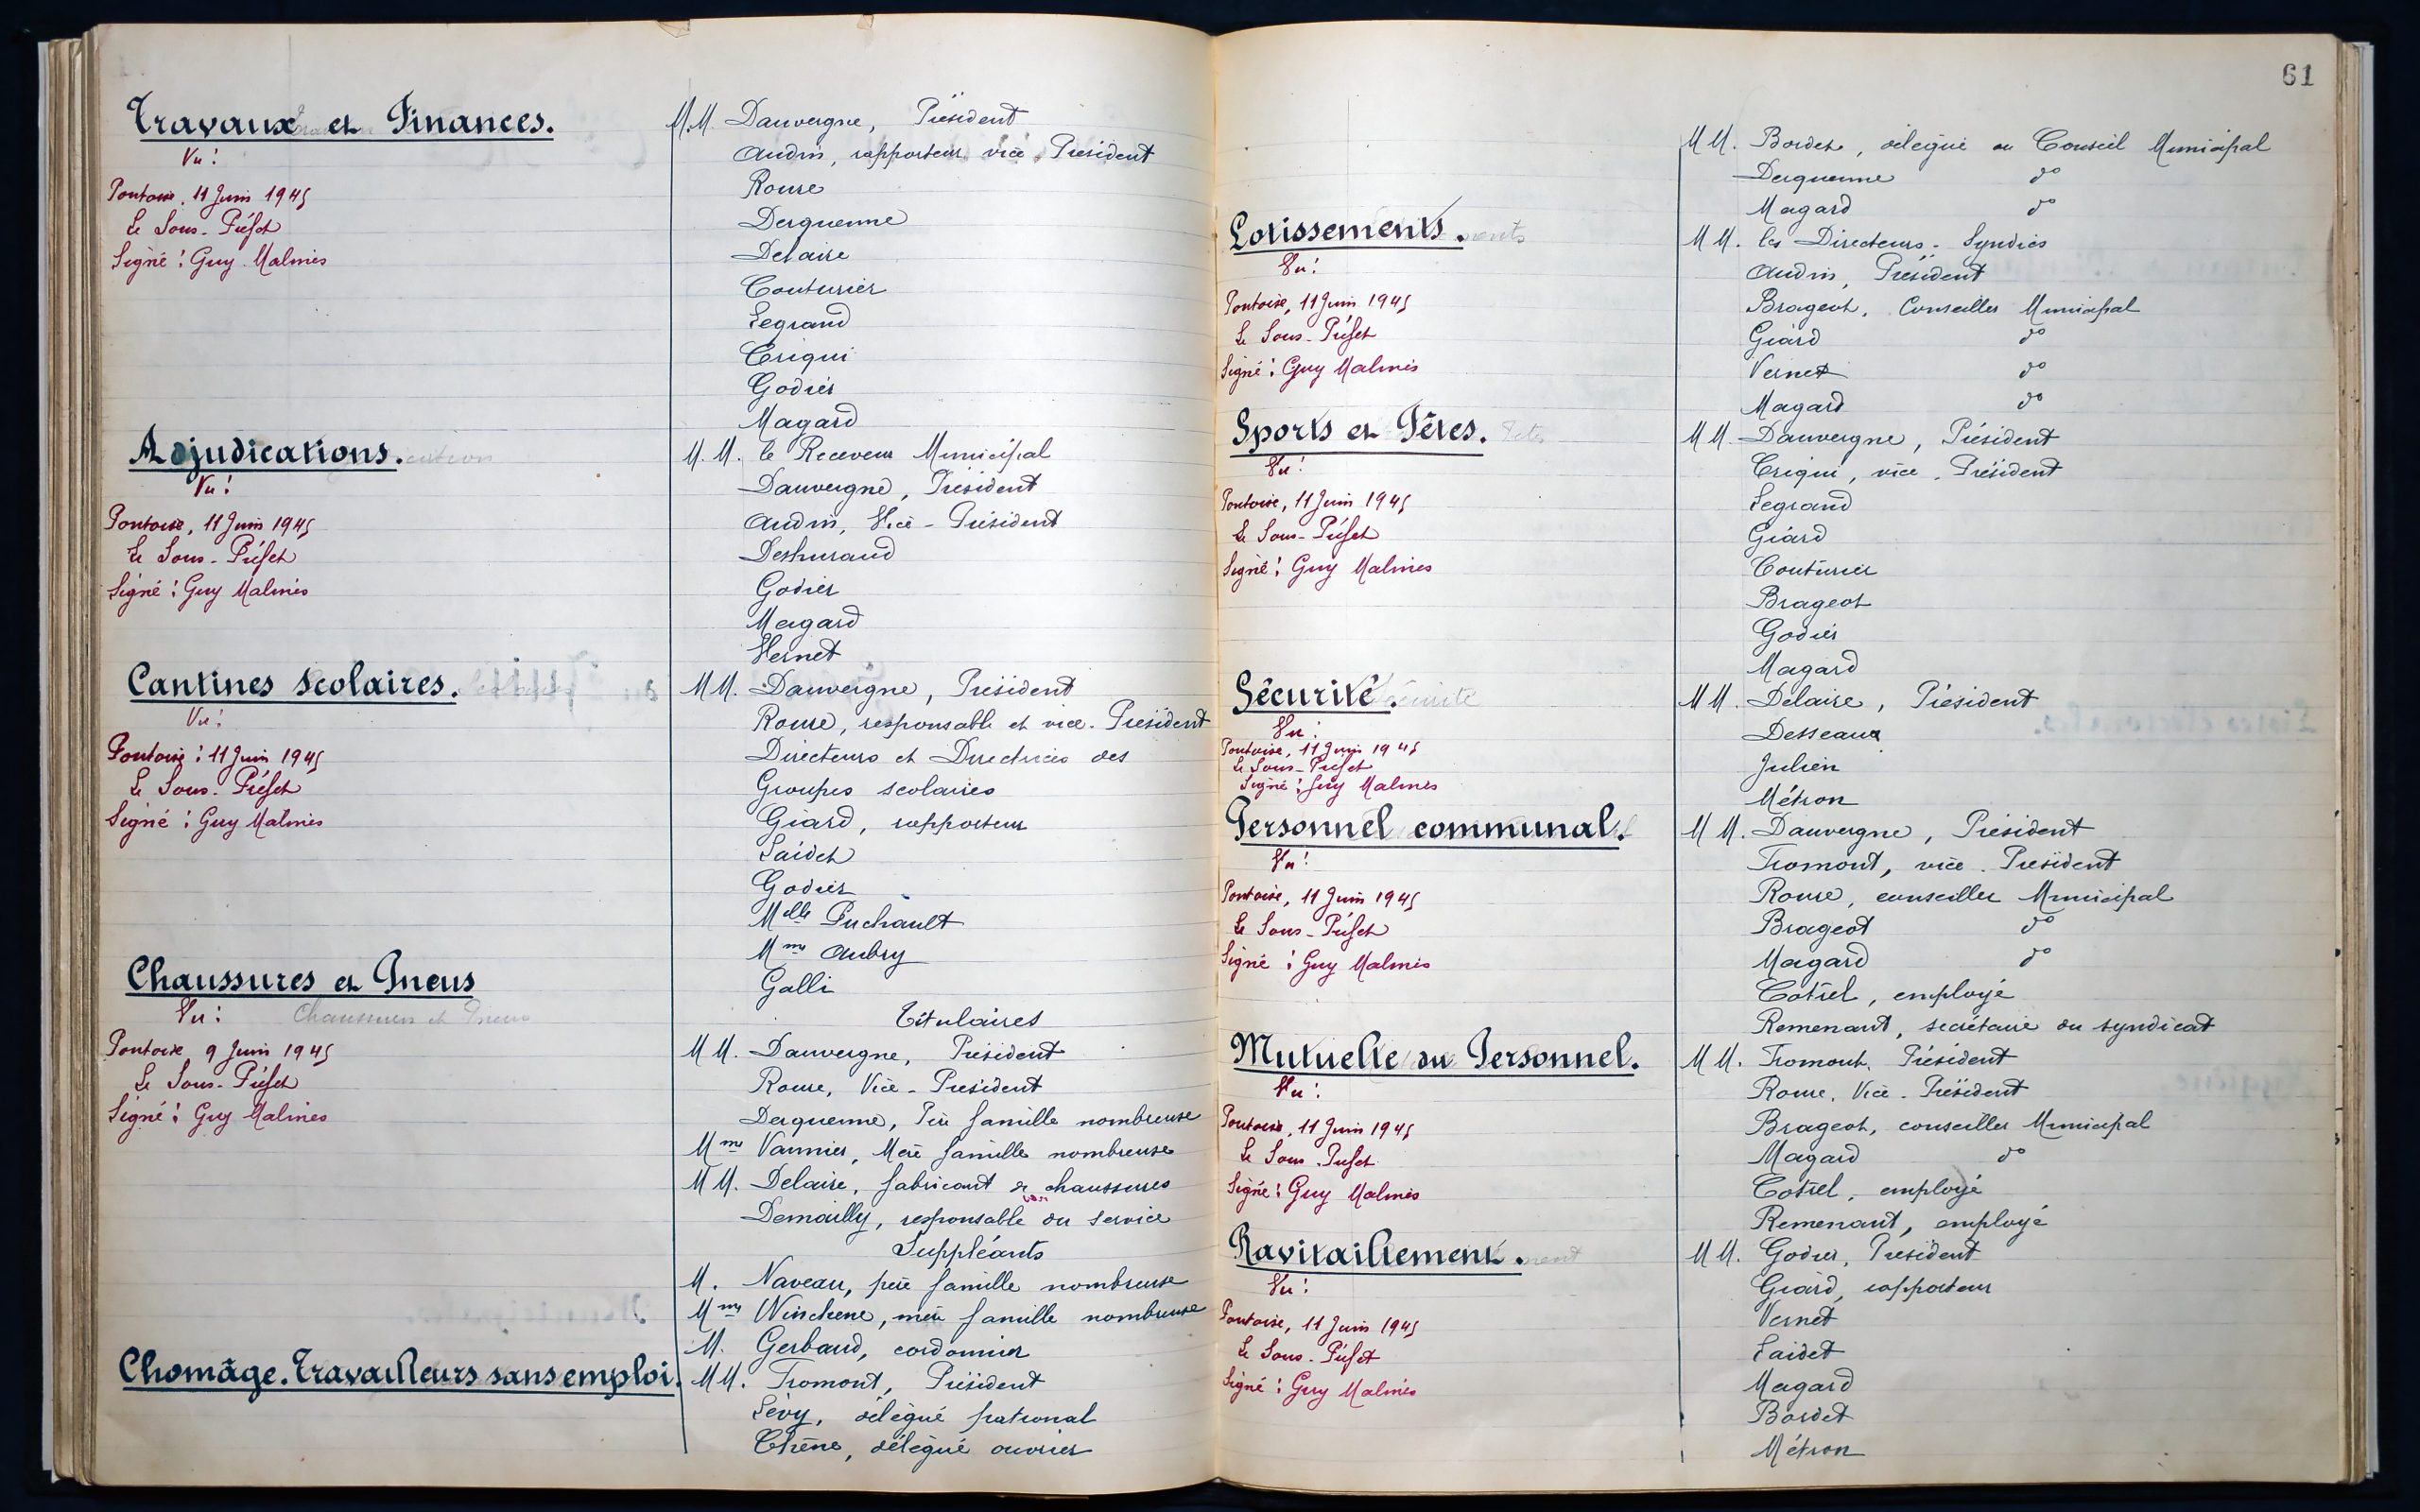 Travaux et Finances.
Vu :
Pontoise, 11 Juin 1945
Le Sous-Préfet
Signé : Guy Malines
M.M. Dauvergne, Président
Audin, rapporteur vice Président
Roure
Derquenne
Delaire
Couturier
Legrand
Criqui
Godier
Magard
Adjudications.
Vu :
Pontoise, 11 Juin 1945
Le Sous-Préfet
Signé : Guy Malines
M.M. le Receveur Municipal
Dauvergne, Président
Audin, Vice-Président
Godier
Magard
Vernet
Cantines scolaires.
Vu :
Pontoise : 11 Juin 1945
Le Sous-Préfet
Signé : Guy Malines
MM. Dauvergne, Président
Roure, responsable et vice-Président
Directeurs et Directrices des
Groupes scolaires
Giard, rapporteur
Laidet
Godier
Melle Puchault
Mme Aubry
Galli
Chaussures et Pneus
Vu : Chaussures et Pneus
Pontoise 9 Juin 1945
Le Sous-Préfet
Signé : Guy Malines
Titulaires
MM. Dauvergne, Président
Roure, Vice-Président
Derquenne, Père famille nombreuse
Mme Vannier, Mère famille nombreuse
MM. Delaire, fabricant de chaussures
Demailly, responsable du service
Suppléants
M. Naveau, père famille nombreuse
Mme Winckene, mère famille nombreuse
M. Gerbaud, cordonnier
Chomâge. Travailleurs sans emploi.
MM. Fromont, Président
Lévy, délégué patronal
Chêne, délégué ouvrier
61
MM. Bordet, délégué du Conseil Municipal
Derquenne do
Magard do
Lotissements.
Vu :
Pontoise, 11 Juin 1945
Le Sous-Préfet
Signé : Guy Malines
MM. les Directeurs-Syndics
Audin, Président
Brageot, Conseiller Municipal
Giard do
Vernet do
Magard do
Sports et Fêtes.
Vu :
Pontoise, 11 Juin 1945
Le Sous-Préfet
Signé : Guy Malines
MM. Dauvergne, Président
Criqui, vice-Président
Legrand
Giard
Couturier
Brageot
Godier
Magard
Sécurité.
Vu :
Pontoise, 11 Juin 1945
Le Sous-Préfet
Signé : Guy Malines
MM. Delaire, Président
Desseaux
Julien
Métron
Personnel communal.
Vu :
Pontoise, 11 Juin 1945
Le Sous-Préfet
Signé : Guy Malines
MM. Dauvergne, Président
Fromont, vice-Président
Roure, conseiller Municipal
Brageot do
Magard do
Cotrel, employé
Remenant, secrétaire du syndicat
Mutuelle du Personnel.
Vu :
Pontoise, 11 Juin 1945
Le Sous-Préfet
Signé : Guy Malines
MM. Fromont, Président
Roure, Vice-Président
Brageot, conseiller Municipal
Magard do
Cotrel, employé
Remenant, employé
Ravitaillement.
Vu :
Pontoise, 11 Juin 1945
Le Sous-Préfet
Signé : Guy Malines
MM. Godier, Président
Giard, rapporteur
Vernet
Laidet
Magard
Bordet
Métron